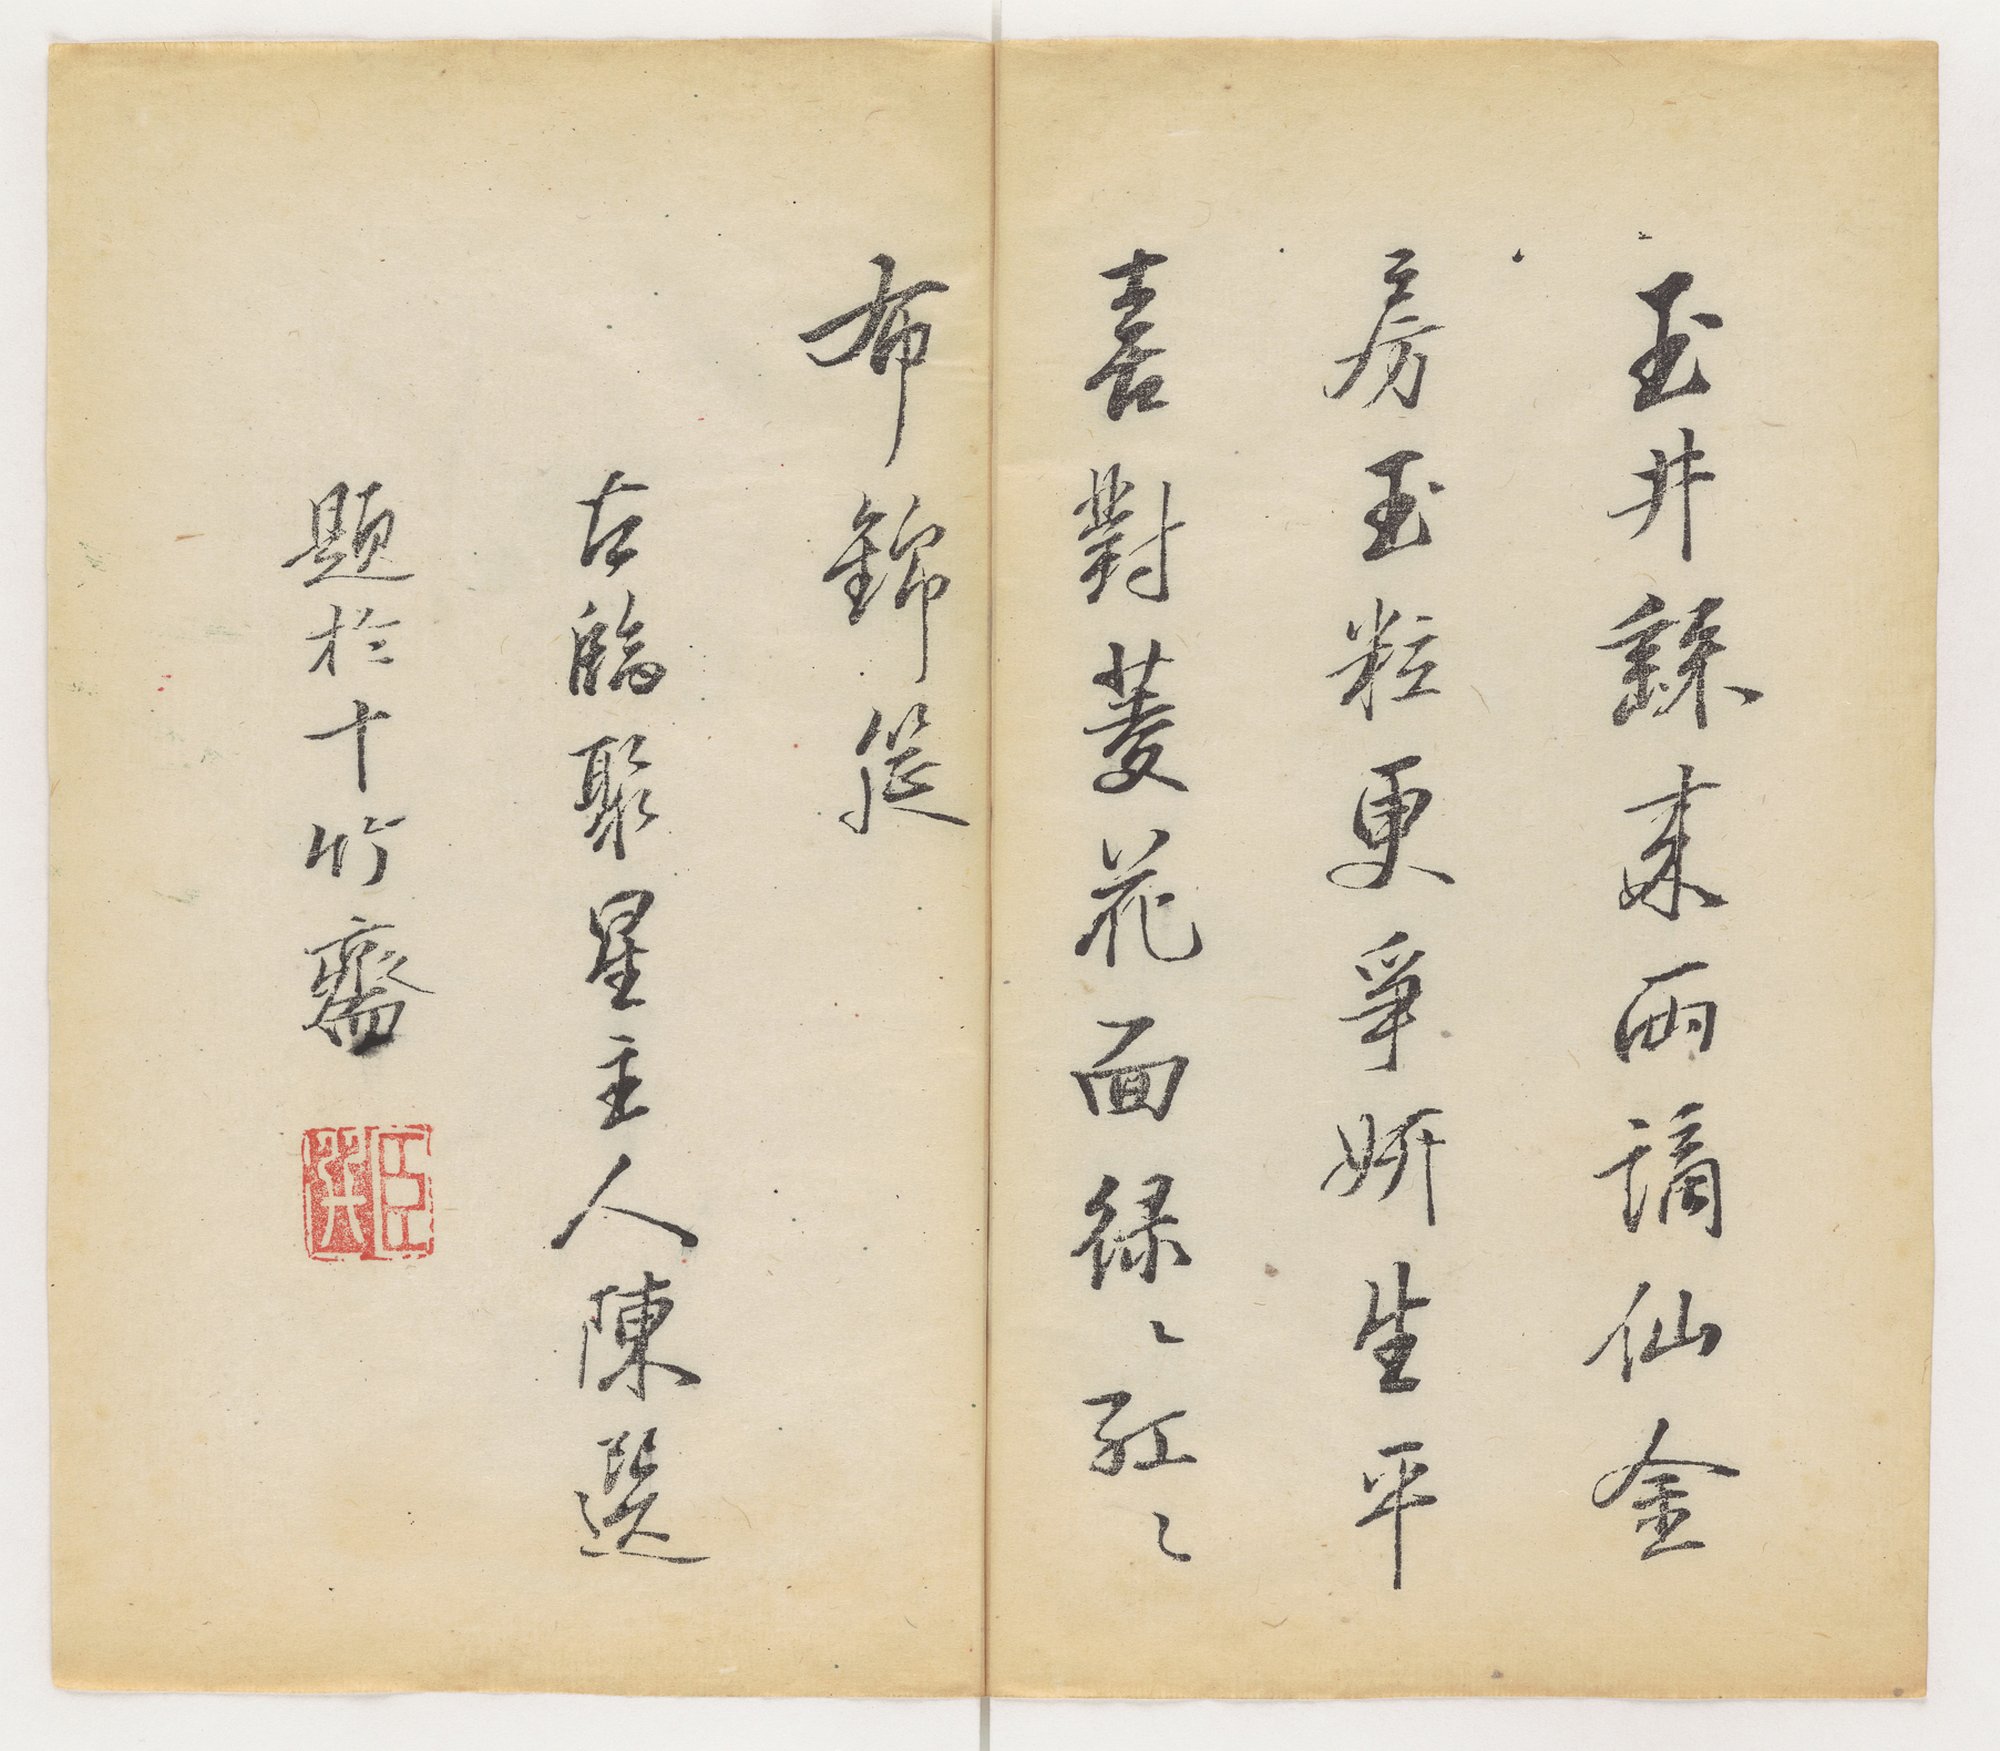 玉井繇来兩謫仙金
房玉粒更爭妍生平
喜對菱花面緑〻紅〻
布錦筵
古臨聚星主人陳選
題於十竹齋
臣